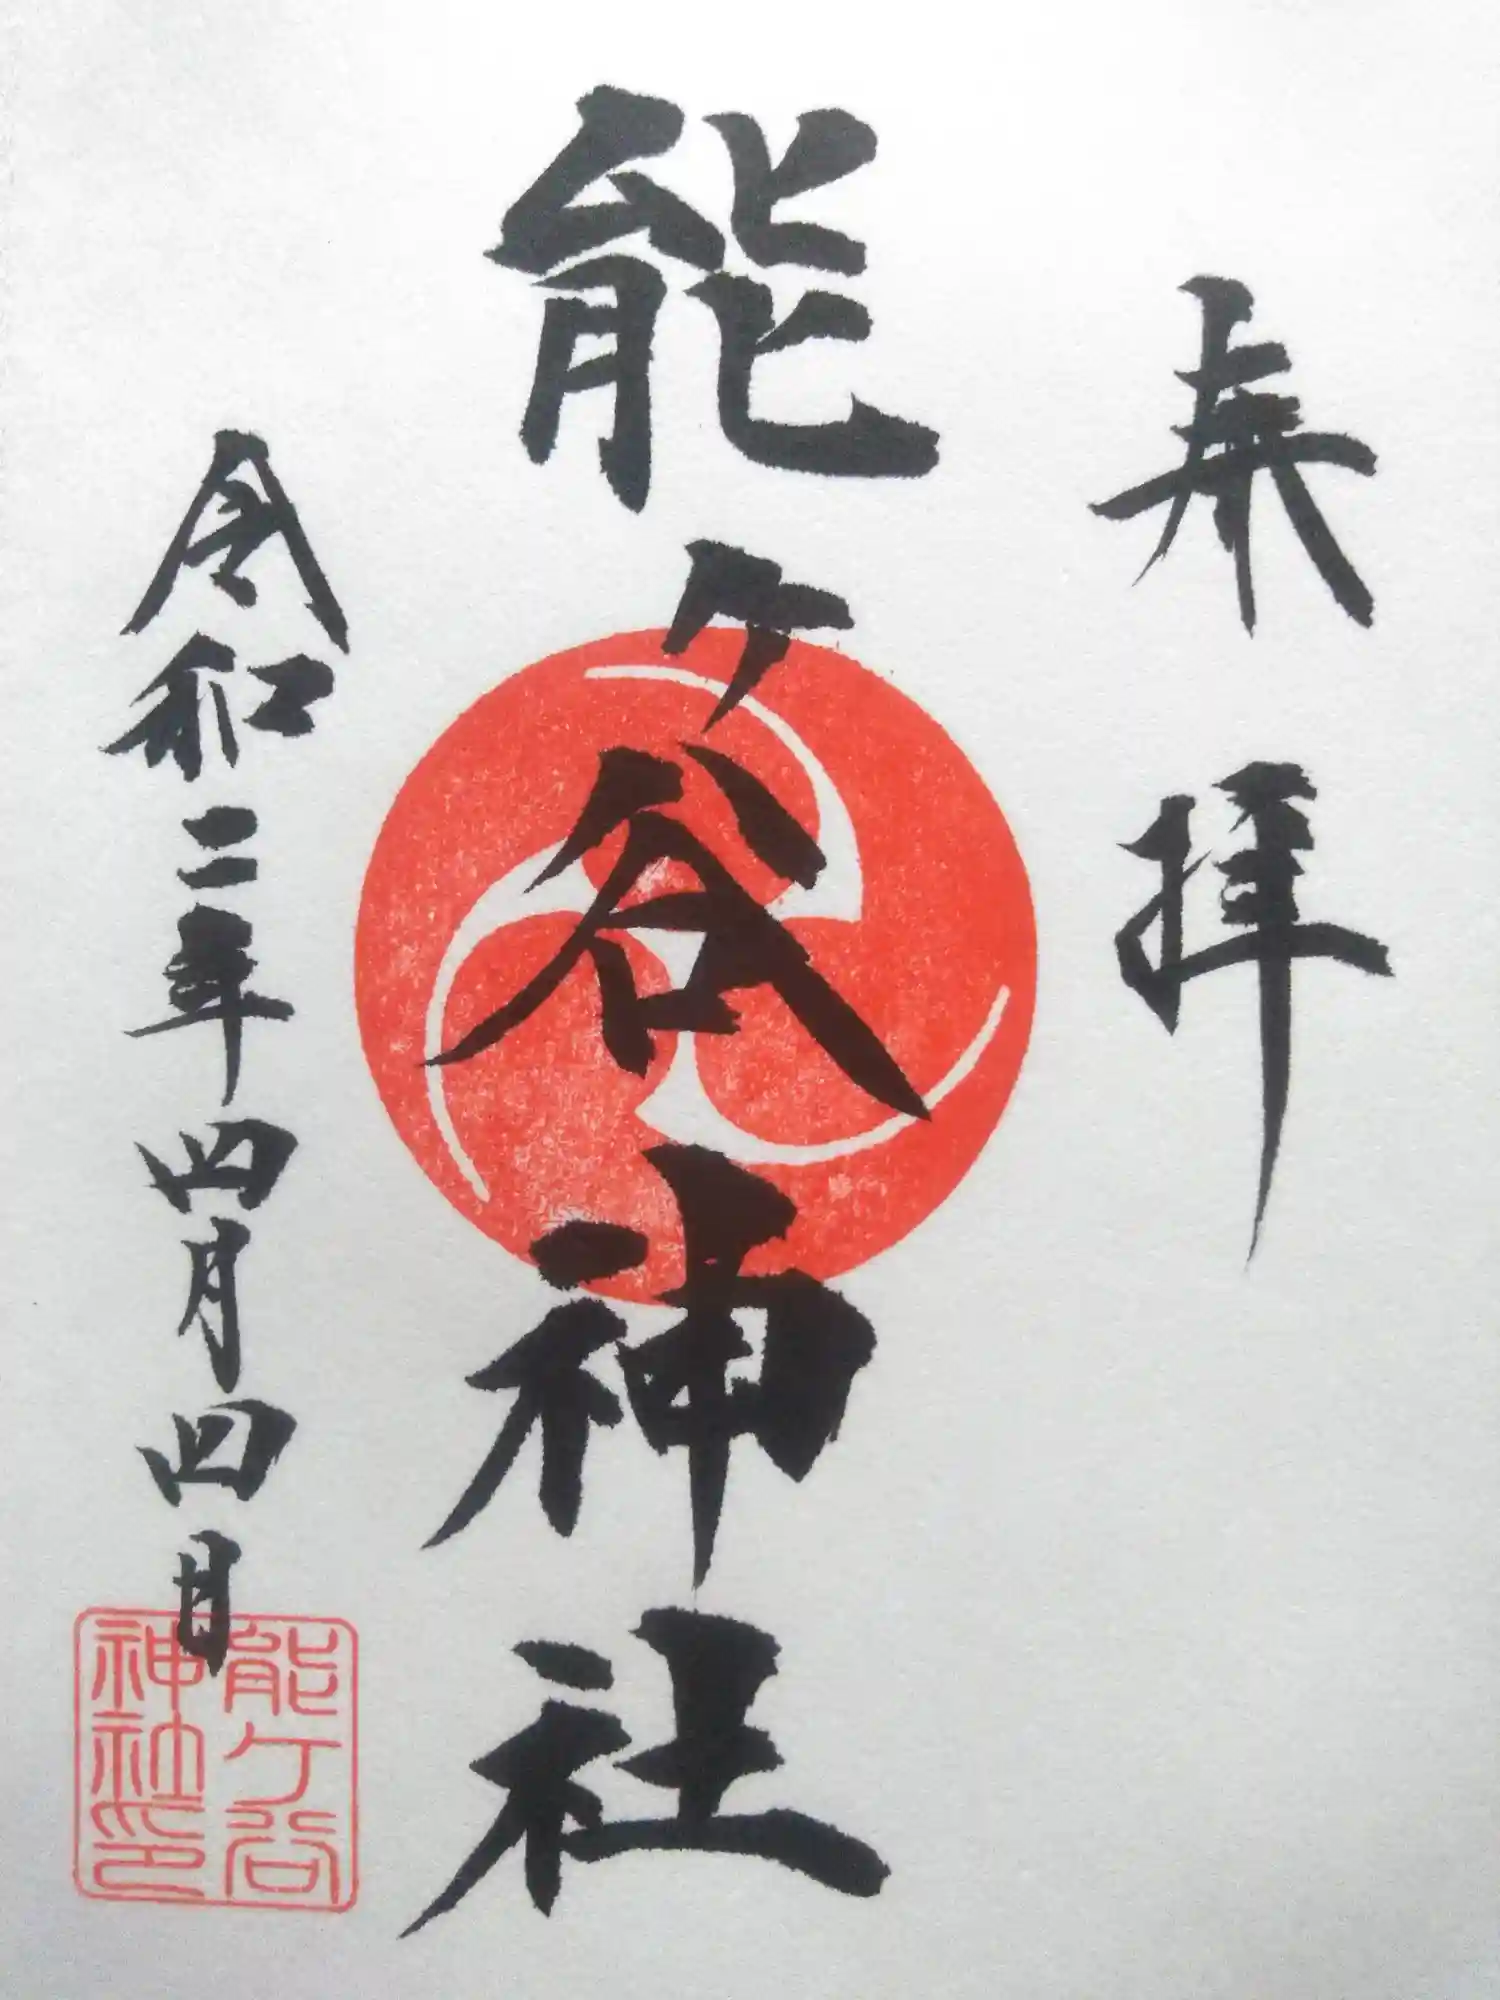 奉拝
能ヶ谷神社
令和二年四月四日
能ヶ谷
神社印